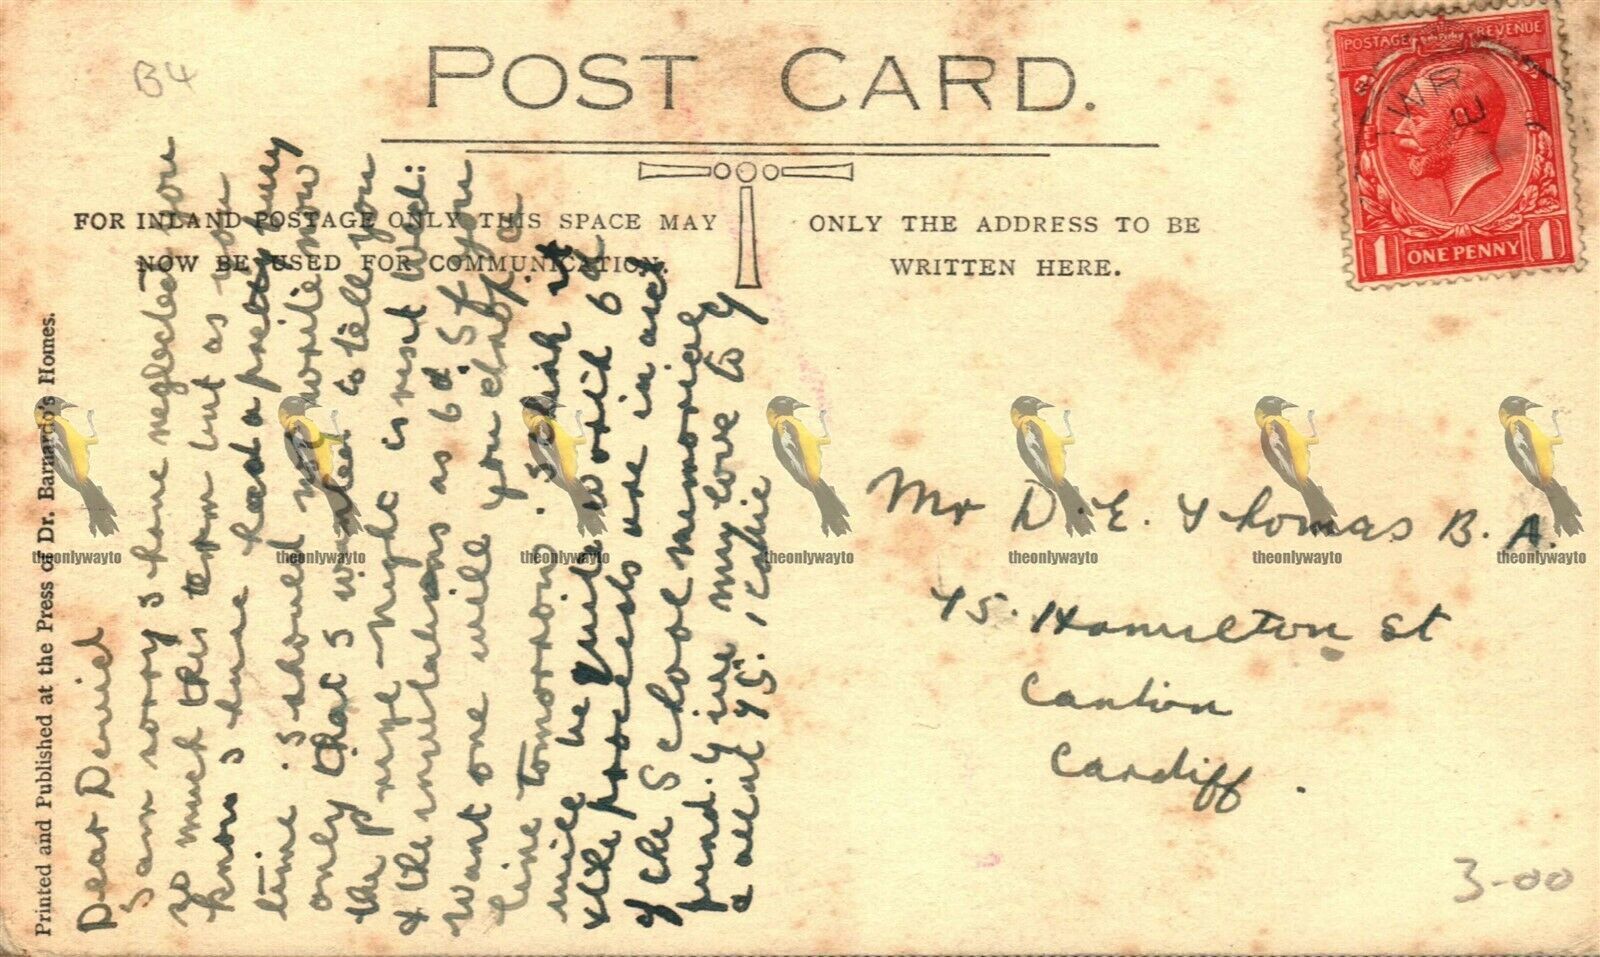 B4
POST CARD.
FOR INLAND POSTAGE ONLY THIS SPACE MAY
NOW BE USED FOR COMMUNICATION.
ONLY THE ADDRESS TO BE
WRITTEN HERE.
POSTAGE REVENUE
1 ONE PENNY 1
Printed and Published at the Press of Dr. Barnardo's Homes.
Dear David
I am sorry I have neglected you
so much this term but as you
know I have had a pretty busy
time. I should not write now
only that I wanted to tell you
the prize-night is next Wed:
& the invitations as 6d If you
want one will you drop a
line tomorrow. I think it
will be quite worth 6d
& the proceeds are in aid
of the School memorial
fund. Give my love to
all at 45.
Mr D. E. Thomas B. A.
45. Hamilton St
Canton
Cardiff.
3-00
theonlywayto theonlywayto theonlywayto theonlywayto theonlywayto theonlywayto theonlywayto